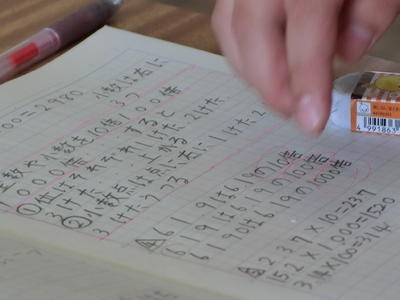 00=2980 小数は右に
3つ
整数や小数も10倍100倍
1000倍すると
①位はそれぞれ1けた2けた
3けた上がる
②小数点は右に1けた2
3けたうつる
A 61.9は6.19の10倍
619は6.19の100倍
6190は6.19の1000倍
A 2.37×10=23.7
1.52×1000=1520
3.14×100=314
4 991863